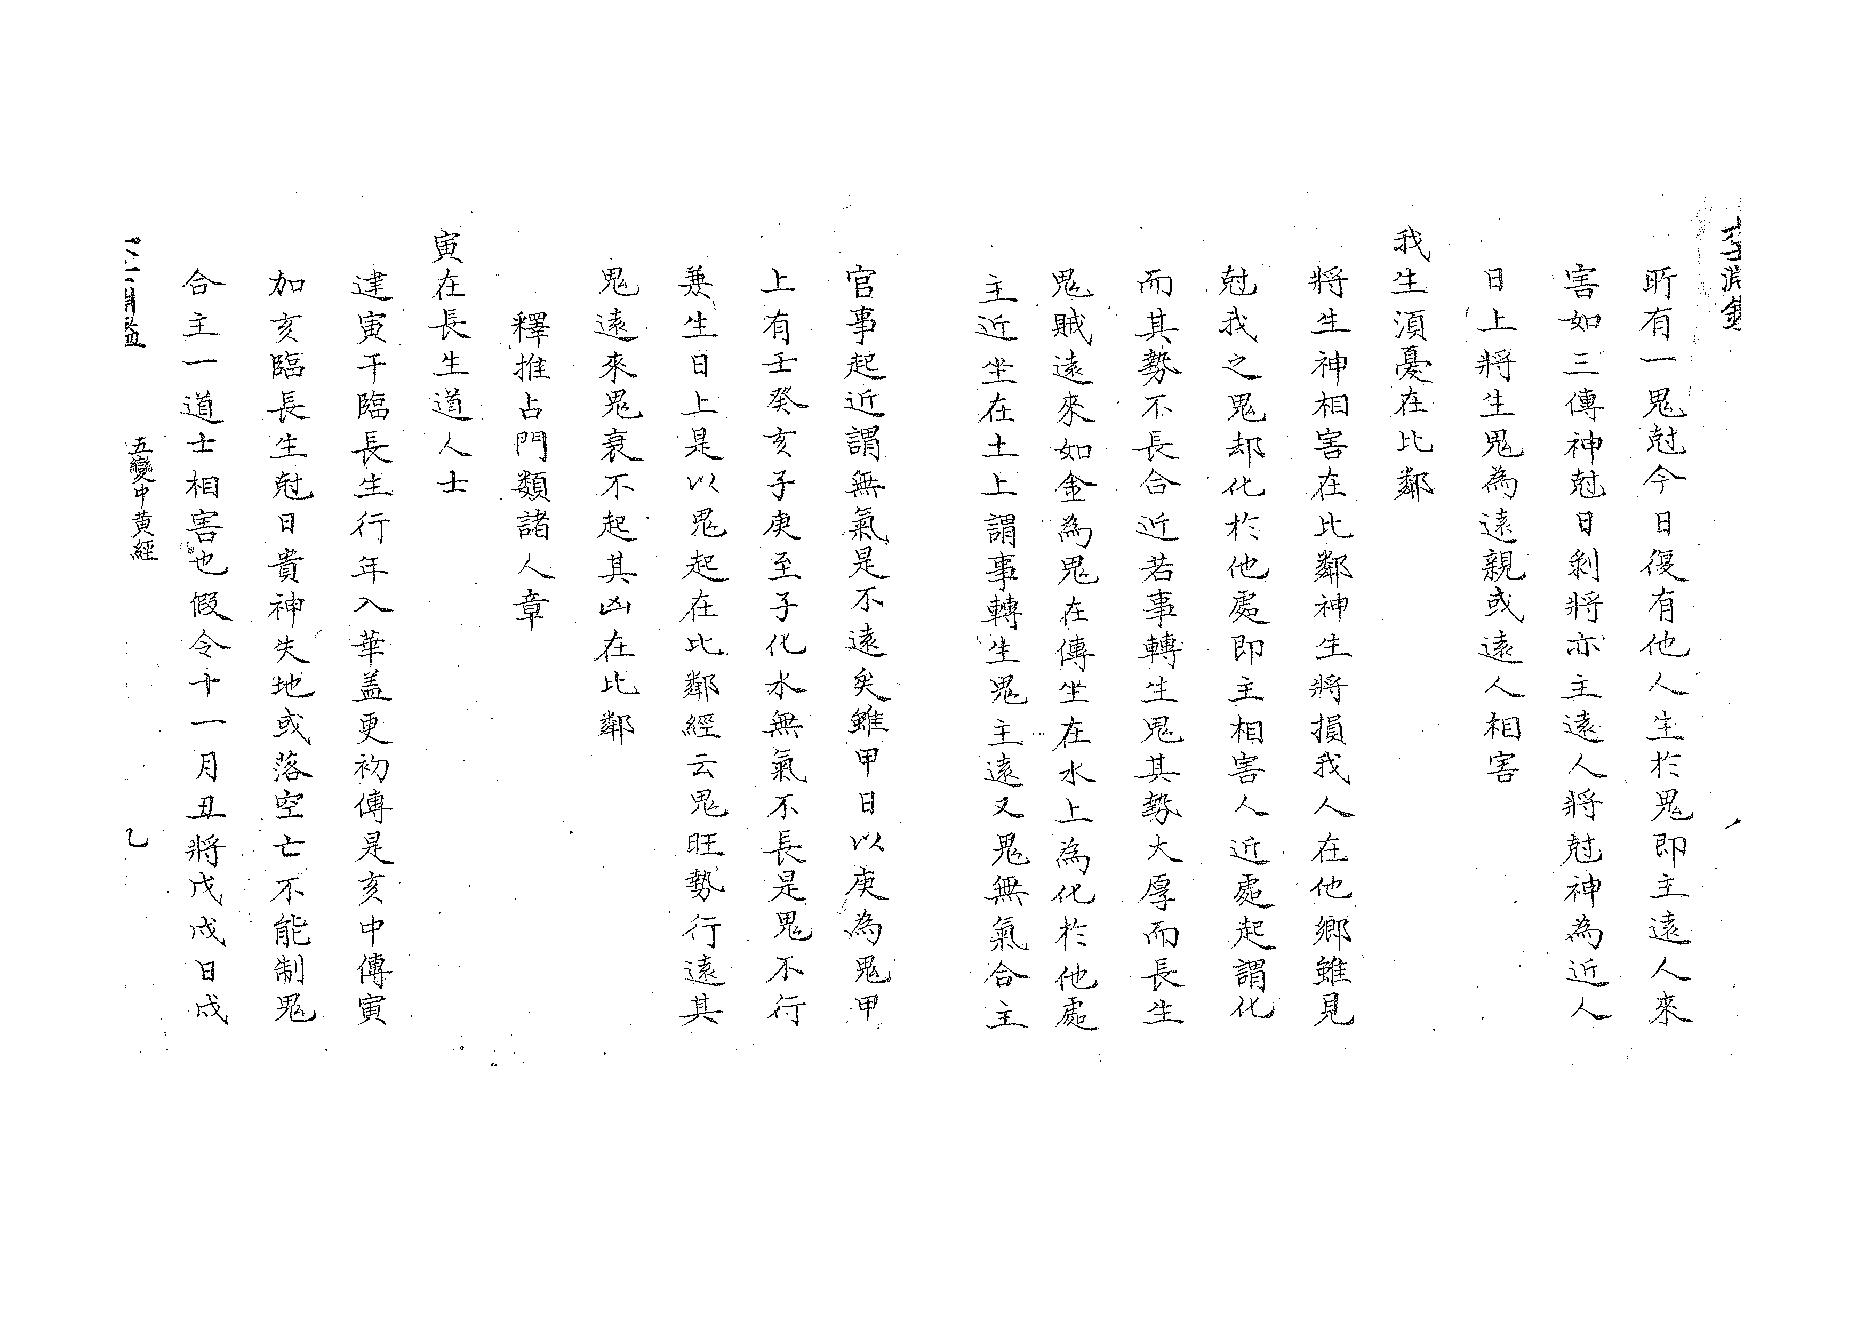 所有一鬼尅今日復有他人生於鬼即主遠人來
害如三傳神尅日剥將亦主遠人將尅神為近人
日上將生鬼為遠親或遠人相害
我生須憂在比鄰
將生神相害在比鄰神生將損我人在他鄉雖見
尅我之鬼却化於他處即主相害人近處起謂化
而其勢不長合近若事轉生鬼其勢大厚而長生
鬼賊遠來如金為鬼在傳坐在水上為化於他處
主近坐在土上謂事轉生鬼主遠又鬼無氣合主
官事起近謂無氣是不遠矣雖甲日以庚為鬼甲
上有壬癸亥子庚至子化水無氣不長是鬼不行
兼生日上是以鬼起在比鄰經云鬼旺勢行遠其
鬼遠來鬼衰不起其凶在比鄰
釋推占門類諸人章
寅在長生道人士
建寅干臨長生行年入華盖更初傳是亥中傳寅
加亥臨長生尅日貴神失地或落空亡不能制鬼
合主一道士相害也假令十一月丑將戊戌日戌
五變中黄經